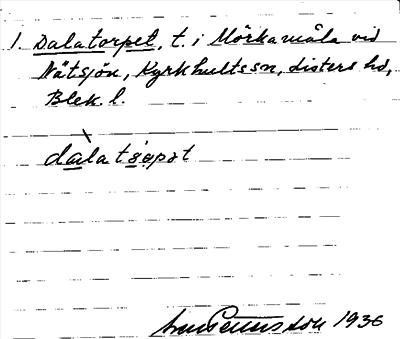 1. Dalatorpet, t. i Mörkamåla vid
Nätsjön, Kyrkhultssn, Listers hd,
Blek. l.
1936